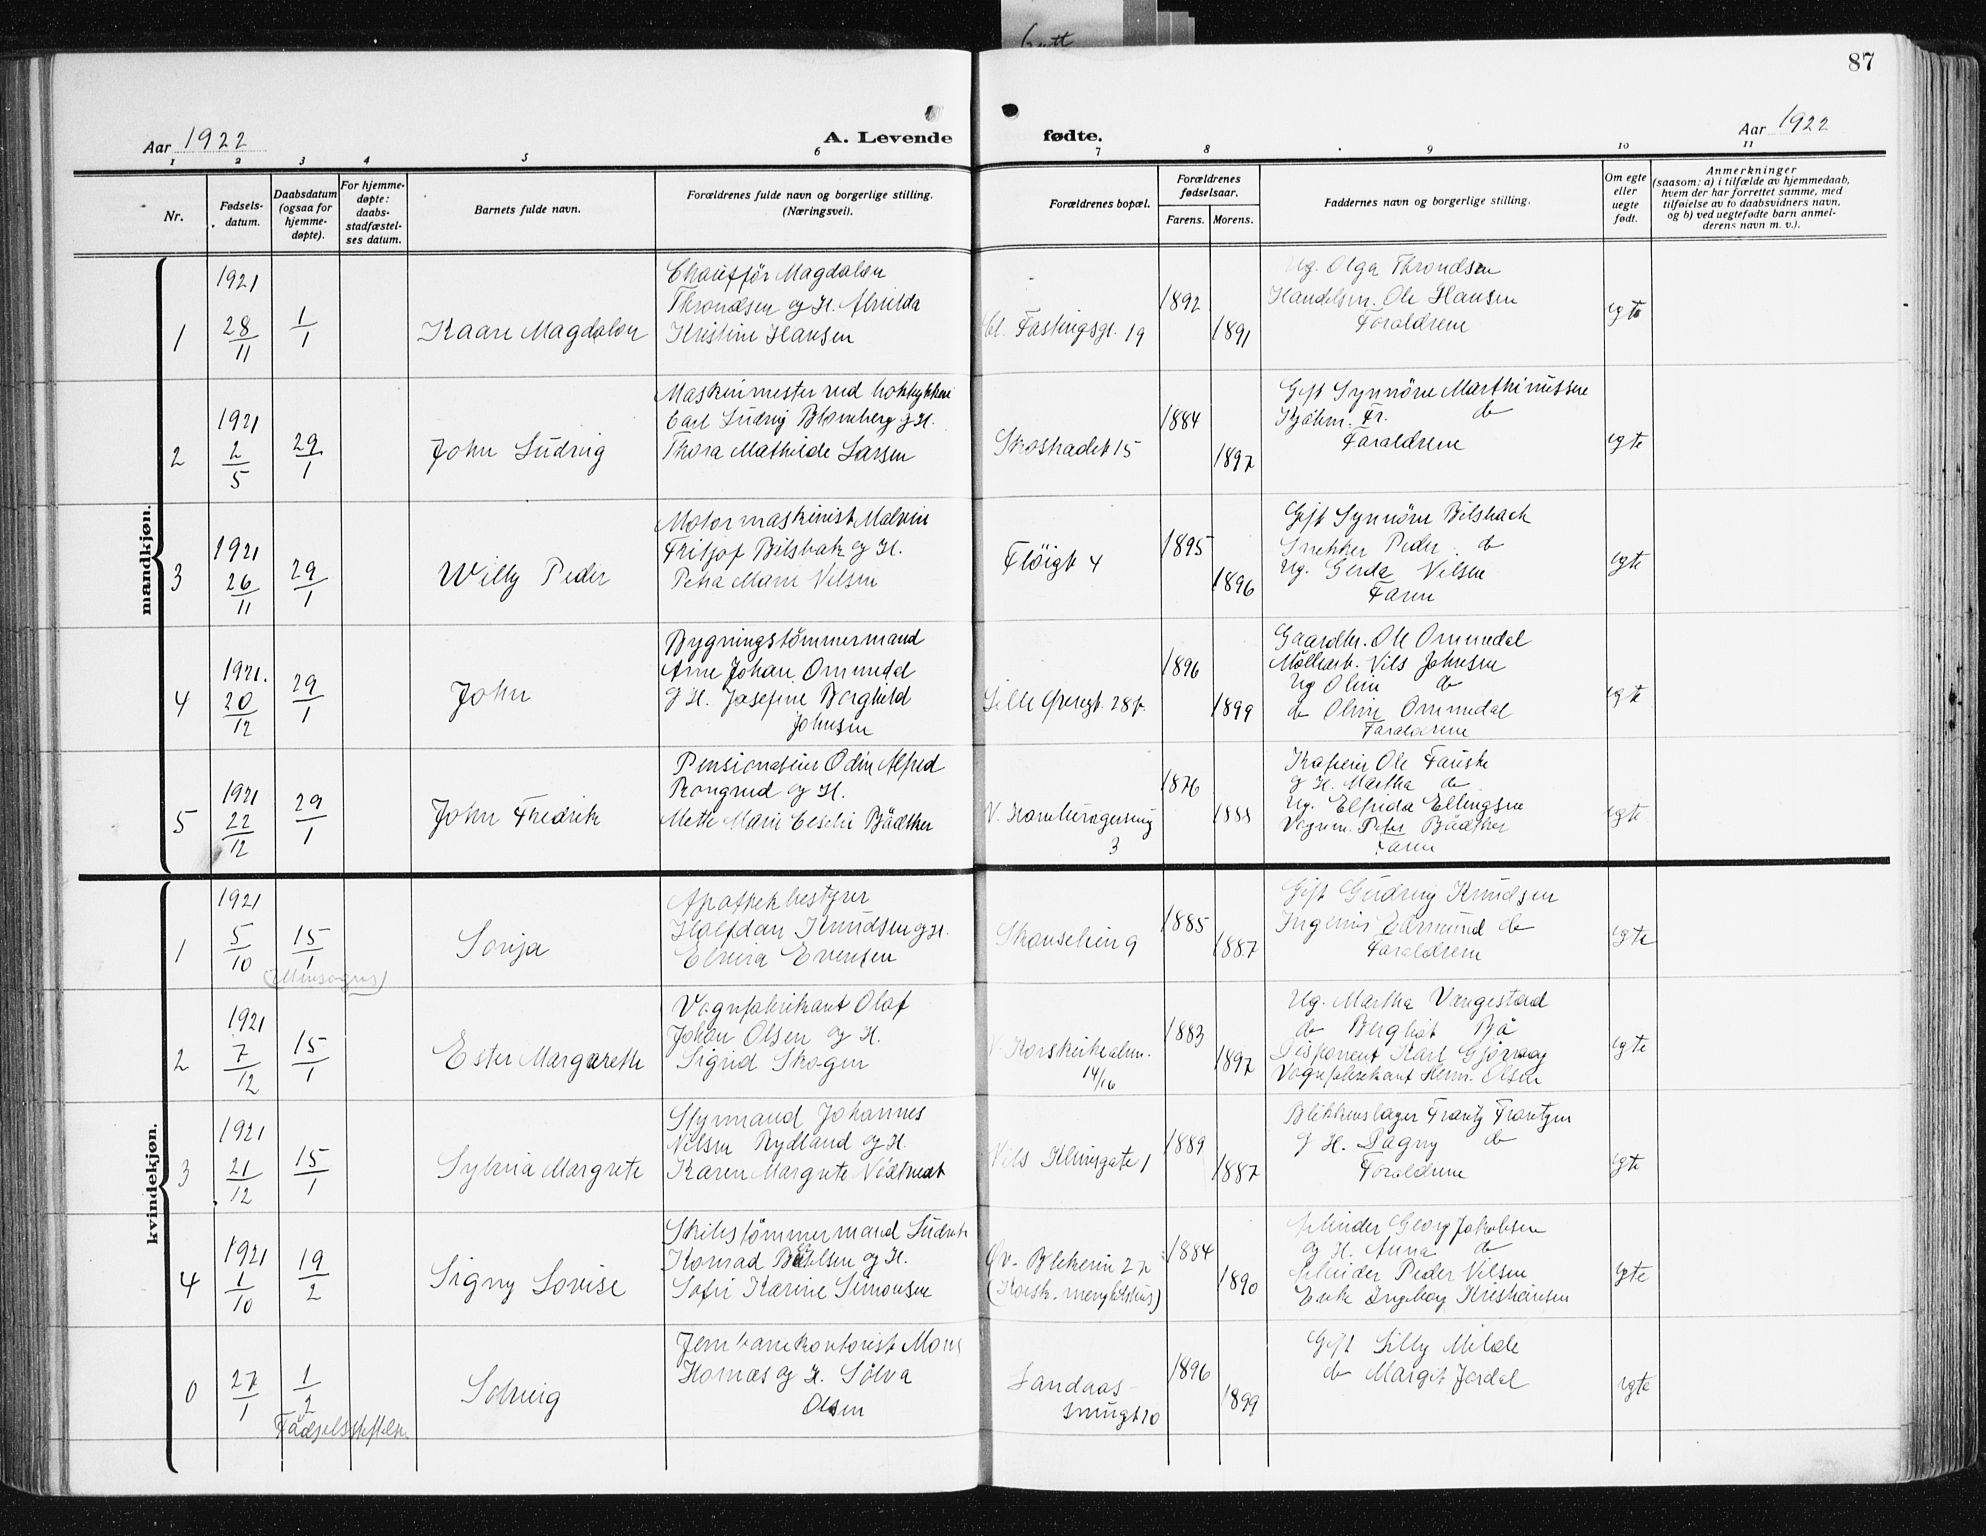 87
Aar 1922
A. Levende fødte.
Aar 1922
1 2 3 4 5 6 7 8 9 10 11
Nr.
Fødselsdatum.
Daabsdatum (ogsaa for hjemmedøpte).
For hjemmedøpte: daabsstadfæstelses datum.
Barnets fulde navn.
Forældrenes fulde navn og borgerlige stilling. (Næringsvei).
Forældrenes bopæl.
Forældrenes fødselsaar.
Farens. Morens.
Faddernes navn og borgerlige stilling.
Om egte eller uegte født.
Anmerkninger
(saasom: a) i tilfælde av hjemmedaab,
hvem der har forrettet samme, med
tilføielse av to daabsvidners navn,
og b) ved uegtefødte barn anmelderens navn m. v.).
mandkjøn.
1
1921
28/11
1/1
Kaare Magdalon
Chauffør Magdalon
Throndsen og H. Alvilda
Kristine Hansen
Fastingsgt. 19
1892
1891
Ug. Olga Throndsen
Handelsm. Ole Hansen
Forældrene
egte
2
1921
2/5
29/1
John Ludvig
Maskinmester ved
Carl Ludvig Blomberg og H.
Thora Mathilde Larsen
Skostrædet 15
1884
1897
Gift Synnöve Marthinussen
Kjøbm. Fr. do
Forældrene
egte
3
1921
26/11
29/1
Willy Peder
Motormaskinist Malvin
Fritjof Bilsbak og H.
Petra Marie Nilsen
Fløigt 4
1895
1896
Gift Synnöve Bilsback
Snekker Peder do
Ug. Gerda Nilsen
Faren
egte
4
1921.
20/12
29/1
John
Bygningstömmermand
Arne Johan Ommedal
og H. Josefine Borghild
Johnsen
Lille Øvregt. 28
1896
1899
Gaardbr. Ole Ommedal
Möllearb. Nils Johnsen
Ug Oline do
do Oline Ommedal
Forældrene
egte
5
1921
22/12
29/1
John Fredrik
Pensionateier Odin Alfred
Rongved og H.
Mette Marie Cecilie Bädtker
3
1876
1888
Ole Fauske
og H. Martha do
Ug. Elfrida Ellingsen
Vognm. Peter Bädtker
Faren
egte
kvindekjøn.
1
1921
5/10
15/1
Sonja
Apothekbestyrer
Halfdan Knudsen og H.
Elvira Evensen
Skanselien 9
1885
1887
Gift Gudrun Knudsen
Ingeniör Edmund do
Forældrene
egte
2
1921
7/12
15/1
Ester Margarethe
Vognfabrikant Olaf
Johan Olsen og H.
Sigrid Skogen
V. Korskirkealm.
14/16
1883
1897
Ug. Martha Vangestad
do Bergliot Bö
Disponent Karl
Vognfabrikant Herm. Olsen
egte
3
1921
21/12
15/1
Sylvia Margrete
Styrmand Johannes
Nilsen Rydland og H.
Karen Margrete
Nils Klimsgate 1
1889
1887
Blikkenslager Frantz Frantzen
og H. Dagny do
Forældrene
egte
4
1921
1/10
19/2
Signy Lovise
Skibstömmermand Ludvik
Konrad og H.
Sofie Karine Simonsen
Øv. Blekevei 27
(Korsk. menighetshus)
1884
1890
Georg Jakobsen
og H. Anna do
Peder Nilsen
Enke Ingeborg Kristiansen
egte
0
27/1
1/2
Fødselsstiftelsen
Solveig
Jernbanekontorist Mons
Hornæs og H. Solva
Olsen
Landaas-
smuget 20
1896
1899
Gift Lilly Milde
do Margit Jordal
egte